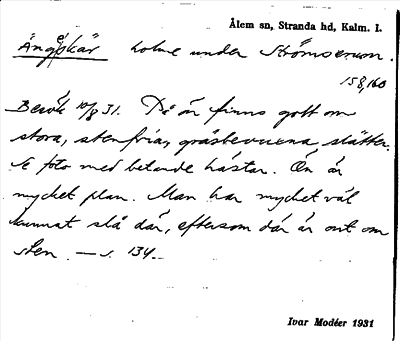 Ålem sn, Stranda hd, Kalm. l.
Ängskär holme under Strömserum.
158,160
Besök 10/8 31. På ön finns gott om
stora, stenfria, gräsbevuxna slätter.
Se foto med betande hästar. Ön är
mycket plan. Man har mycket väl
kunnat slå där, eftersom där är ont om
sten. — s. 134.
Ivar Modéer 1931